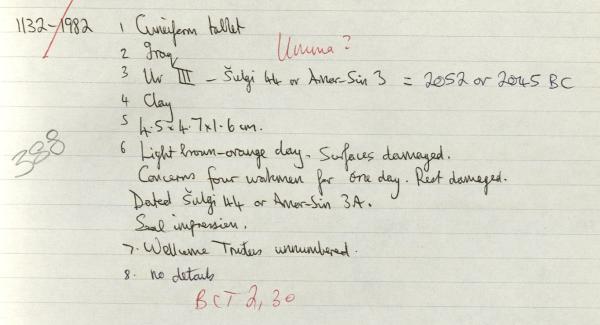 1132-1982 1 Cuneiform tablet
2 Iraq Umma?
3 Ur III - Šulgi 44 or Amar-Sin 3 = 2052 or 2045 BC
4 Clay
5 4.5 x 4.7 x 1.6 cm.
388
6 Light brown-orange clay. Surfaces damaged.
Concerns four workmen for one day. Rest damaged.
Dated Šulgi 44 or Amar-Sin 3A.
Seal impression.
7. Wellcome Trustees unnumbered.
8. no details
BCT 2,30